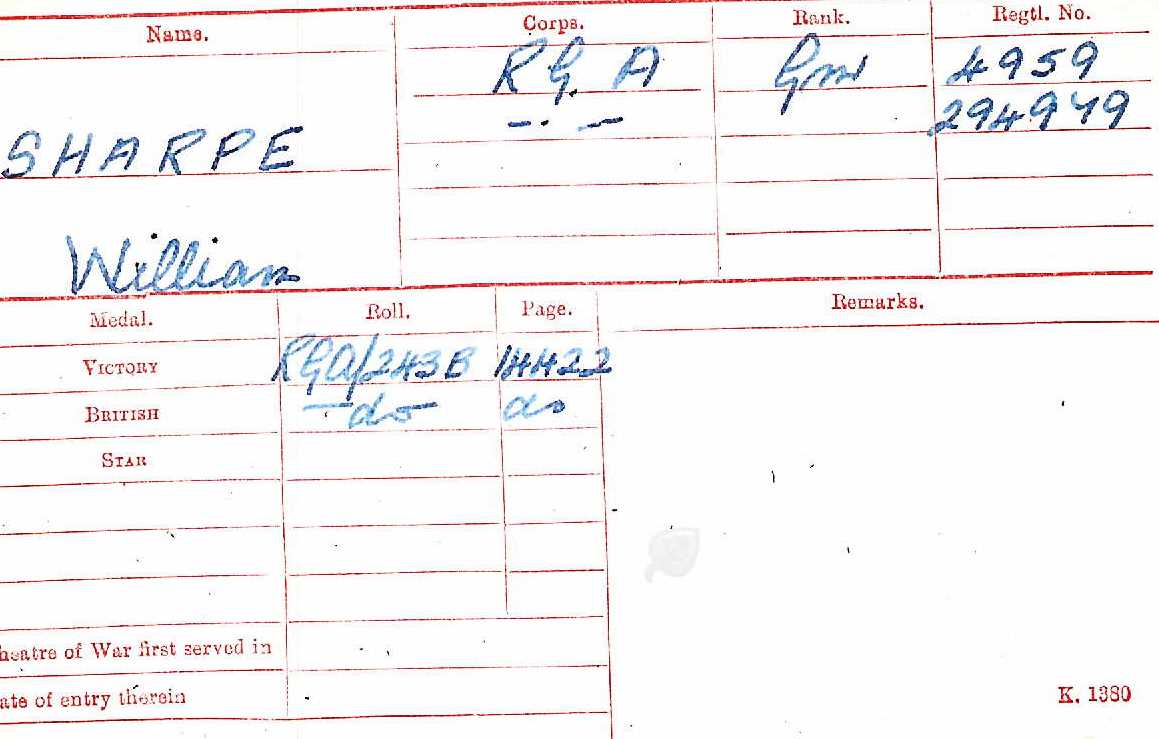 Name. Corps. Rank. Regtl. No.
R.G.A Gnr 4959
SHARPE —.— 294979
William
Medal. Roll. Page. Remarks.
VICTORY RGA/243B 14422
BRITISH —do— do
STAR
heatre of War first served in
ate of entry therein
K. 1380